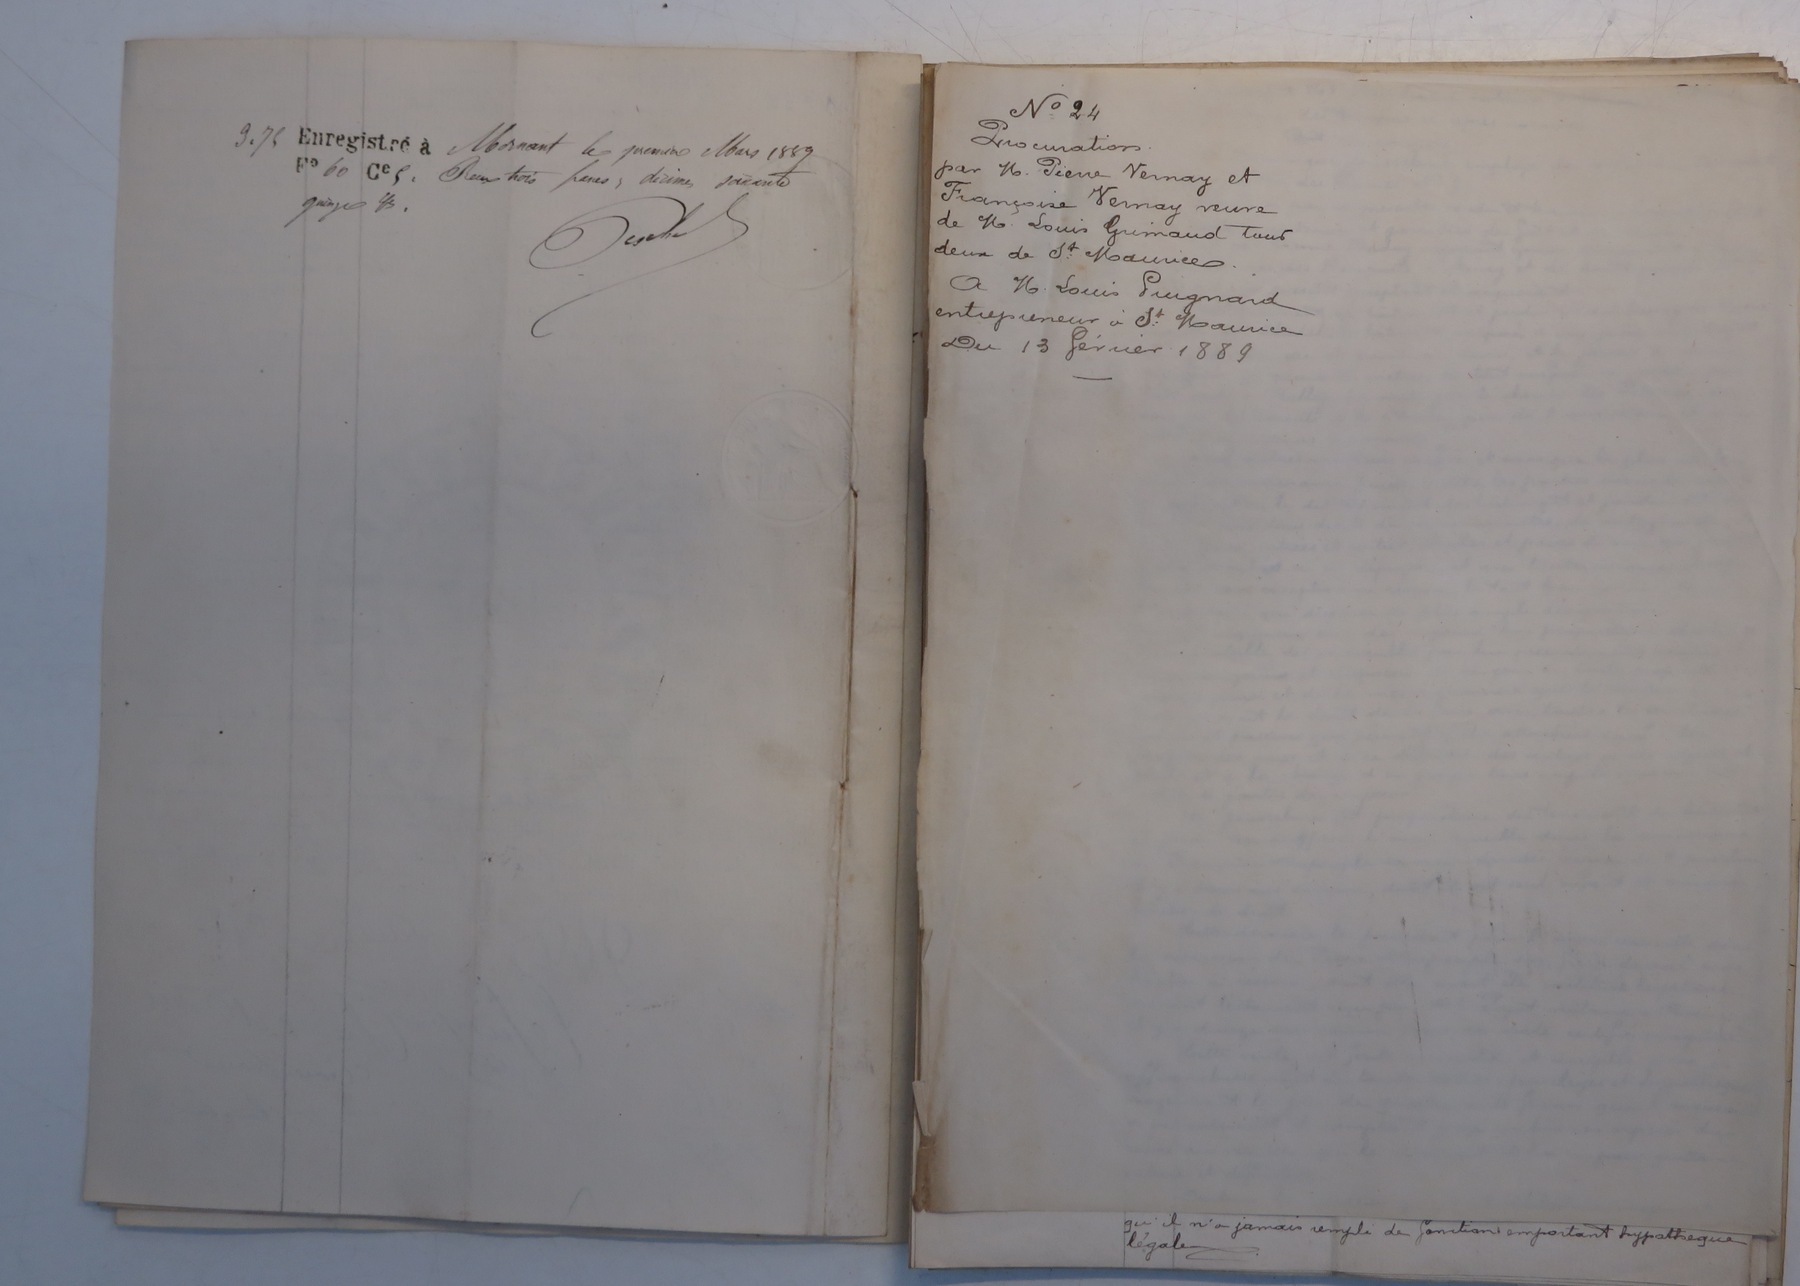 3.75 Enregistré à Mornant le premier Mars 1889
Fº 60 Ce 5. Reçu trois francs, décimes soixante
quinze c/s.
Nº 24
Procuration
par M. Pierre Vernay et
Françoise Vernay veuve
de M. Louis Grimaud tous
deux de St Maurice.
A M. Louis Guignard
entrepreneur à St Maurice
Du 13 février 1889
qu'il n'a jamais rempli de fonctions emportant hypothèque
légale